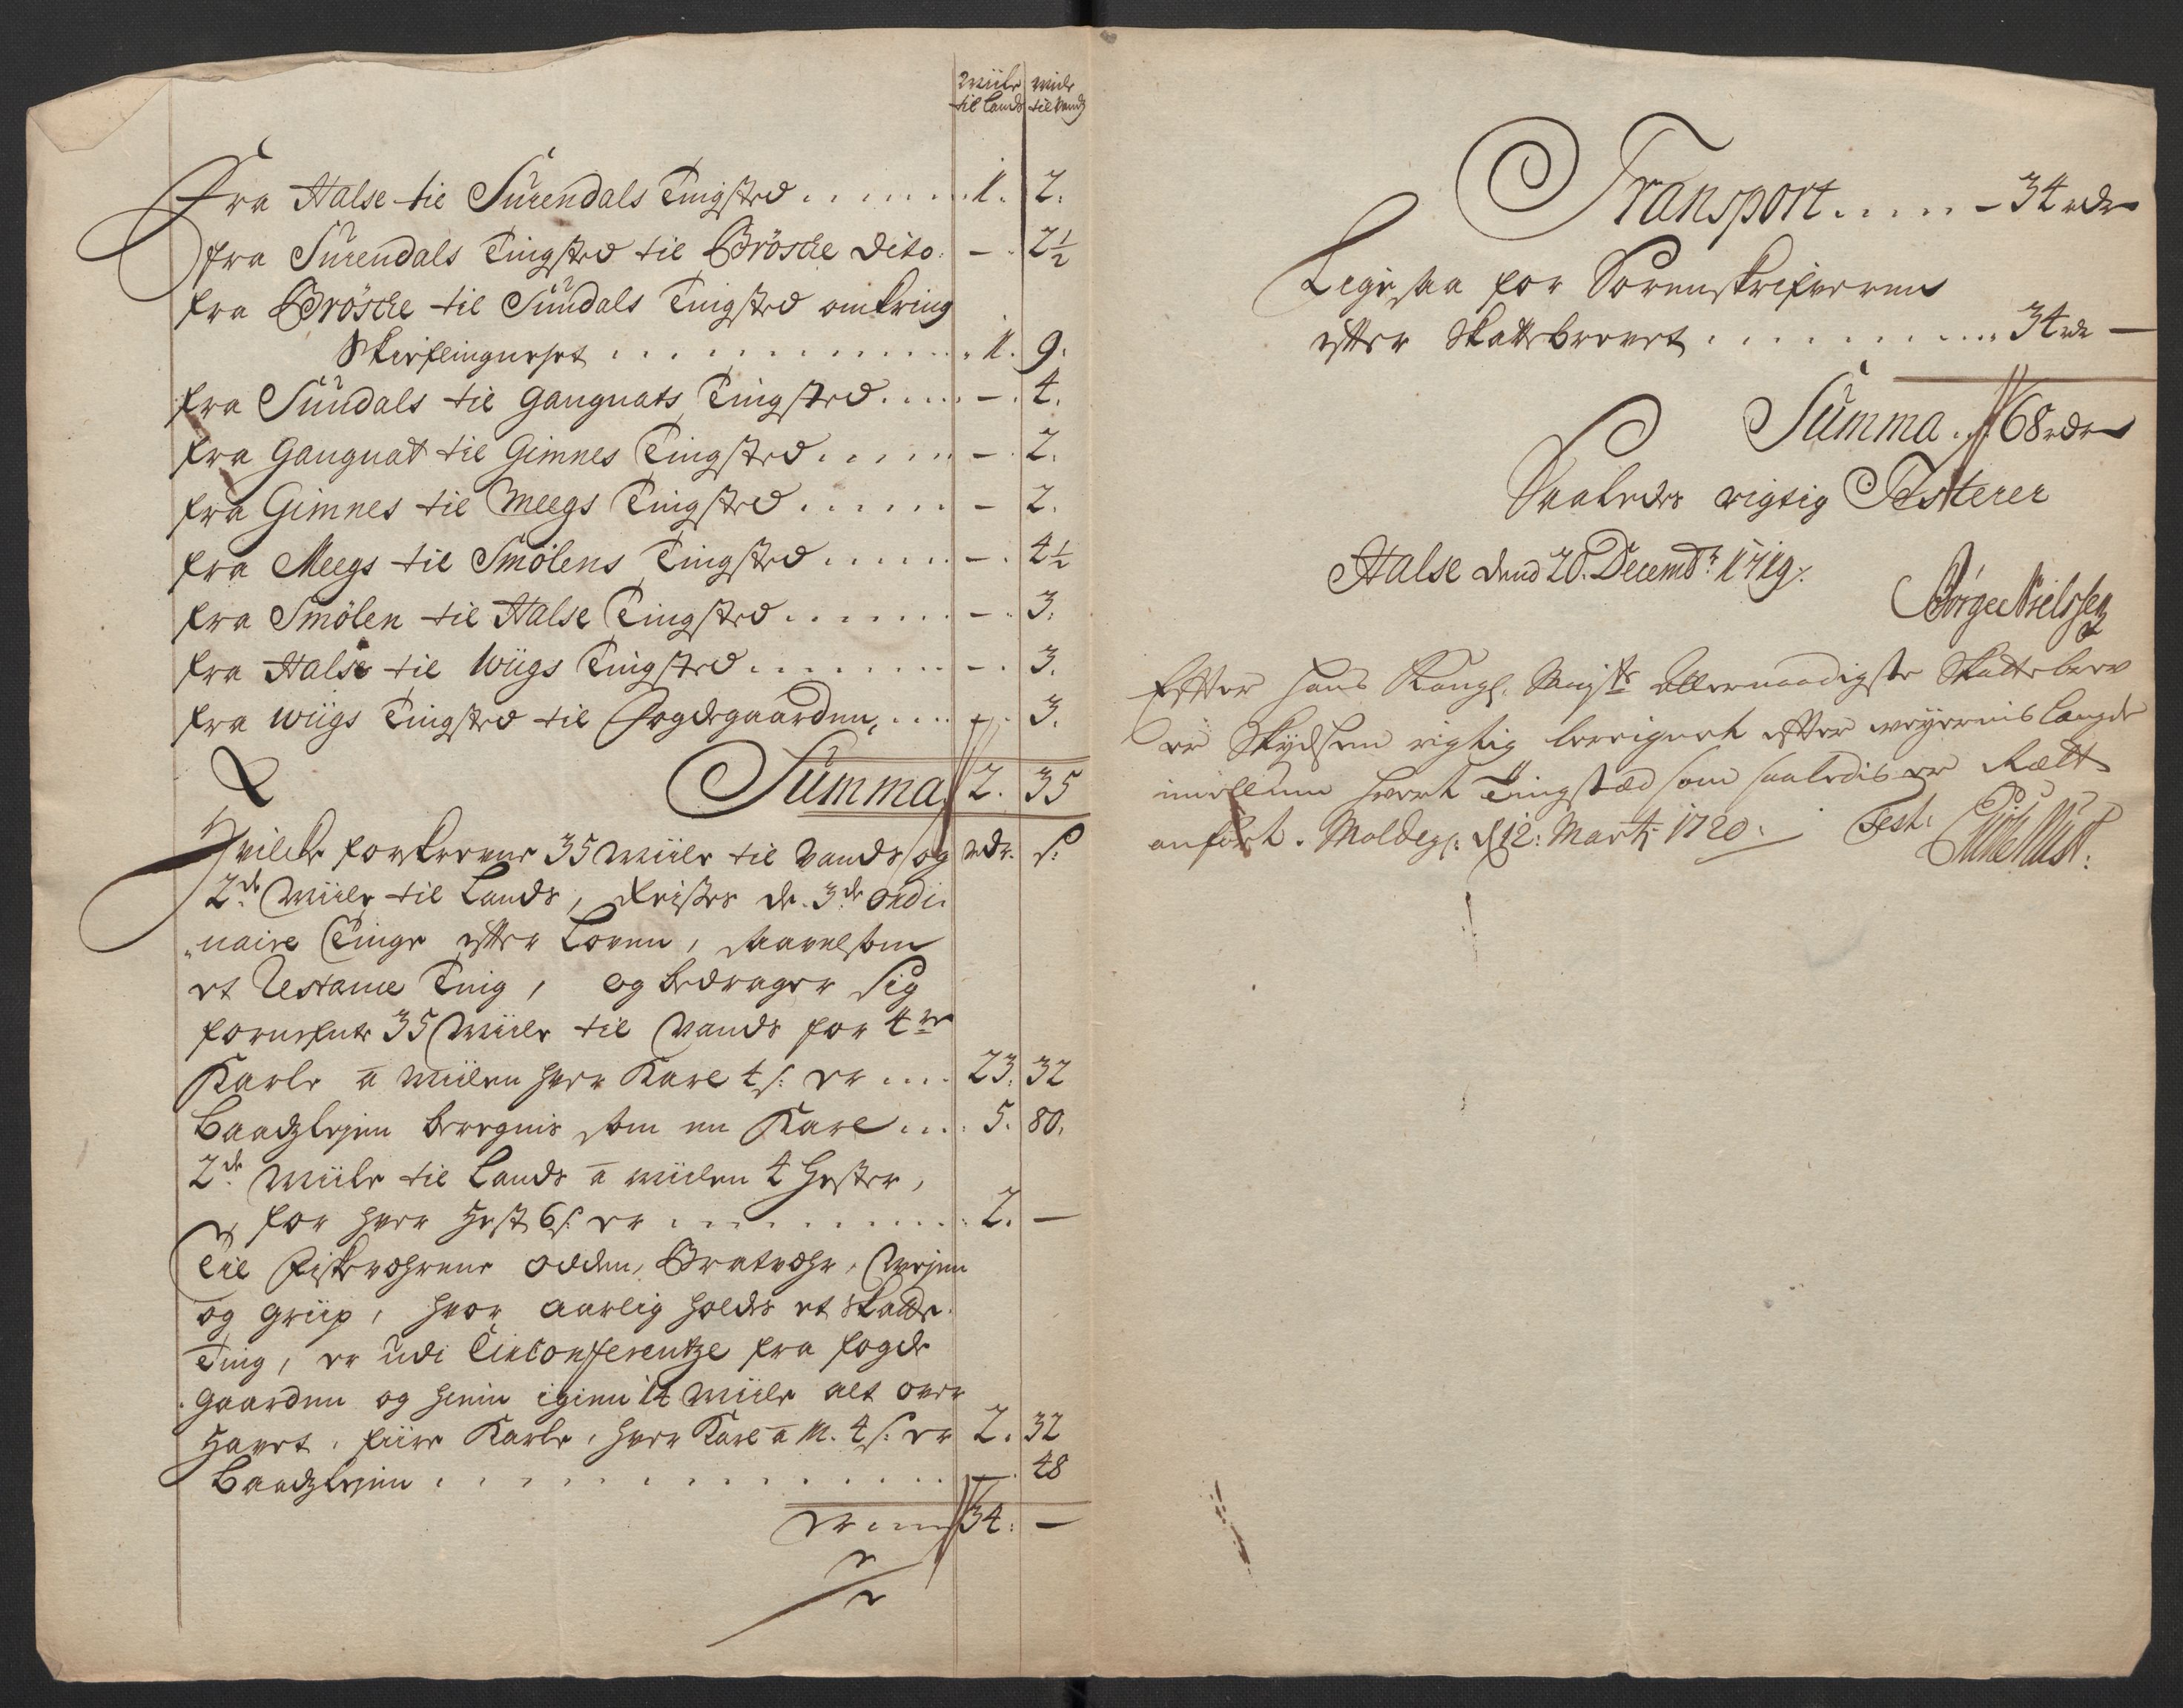 Miile Miile
til Lands til Vands
Fra Halse til Surendals Tingsted . . . . . . . 1. 2.
fra Surendals Tingsted til Bröske dito. — 2½
fra Bröske til Sundals Tingsted omkring
Skieflingneset . . . . . . . . . . . . . 1. 9.
fra Sundals til Gangnats Tingsted . . . . . — . 4.
fra Gangnat til Gimnes Tingsted . . . . . — . 2.
fra Gimnes til Meegs Tingsted . . . . . . — 2.
fra Meegs til Smölens Tingsted . . . . . . — . 4½
fra Smölen til Halse Tingsted . . . . . . . — . 3.
fra Halse til Wiigs Tingsted . . . . . . . . — . 3.
fra Wiigs Tingsted til Fogdegaarden, . . . . — . 3.
Summa 2. 35
Hvilcke forskrevne 35 Miile til Vands og rdr. s:
2de Miile til Lands, Reises de 3de ordi-
naire Tinge efter Loven, saavelsom
et Ting, og bedrager sig
fornefnte 35 Miile til Vands for 4re
Karle a Miilen hver Karl 4 s: er . . . . 23. 32
Baadzleyen beregnis som en Karl . . . . 5. 80.
2de Miile til Lands a miilen 4 Hester,
for hver Hest 6 s: er . . . . . . . . . . 2. —
Til Fiskeværene Odden, Bratvær, Vejen
og Griip, hvor aarlig holdes et Skatte
Ting, er udi Circonferentze fra fogde
gaarden og hiem igien 14 Miile alt over
Havet, fiire Karle, hver Karl a M. 4 s: er 2. 32
Baadzleyen . . . . . . . . . . . . . . . — . 48
er 34. —
Transport . . . . . — 34 rdr
Ligesaa for Sorenskrifveren
efter Skattebrevet . . . . . . . . . . . 34 rdr —
Summa . 68 rdr
Saaledes rigtig Testerer
Halse dend 20. Decembr: 1719.
Börge Nielssen
Efter Hans Kongl. Mayts allernaadigste Skattebrev
er Skydsen rigtig beregnet efter veyernis Længde
imellum hvert Tingsted som saaledis er Rætt
anfört. Moldeg: d 12: Marti 1720. Test: